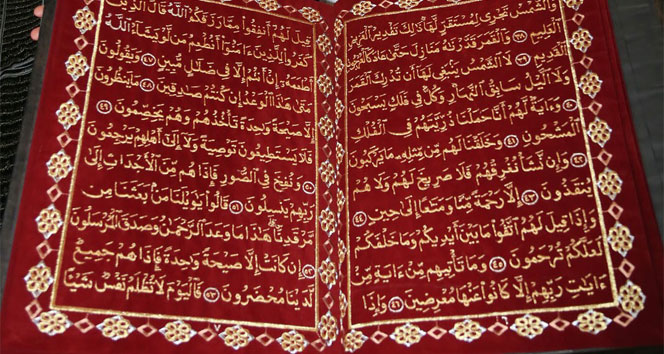 وَٱلشَّمْسُ تَجْرِى لِمُسْتَقَرٍّ لَّهَا ذَٰلِكَ تَقْدِيرُ ٱلْعَزِيزِ
ٱلْعَلِيمِ ٣٨ وَٱلْقَمَرَ قَدَّرْنَٰهُ مَنَازِلَ حَتَّىٰ عَادَ كَٱلْعُرْجُونِ
ٱلْقَدِيمِ ٣٩ لَا ٱلشَّمْسُ يَنۢبَغِى لَهَآ أَن تُدْرِكَ ٱلْقَمَرَ
وَلَا ٱلَّيْلُ سَابِقُ ٱلنَّهَارِ وَكُلٌّ فِى فَلَكٍ يَسْبَحُونَ
٤٠ وَءَايَةٌ لَّهُمْ أَنَّا حَمَلْنَا ذُرِّيَّتَهُمْ فِى ٱلْفُلْكِ
ٱلْمَشْحُونِ ٤١ وَخَلَقْنَا لَهُم مِّن مِّثْلِهِۦ مَا يَرْكَبُونَ
٤٢ وَإِن نَّشَأْ نُغْرِقْهُمْ فَلَا صَرِيخَ لَهُمْ وَلَا هُمْ
يُنقَذُونَ ٤٣ إِلَّا رَحْمَةً مِّنَّا وَمَتَٰعًا إِلَىٰ حِينٍ ٤٤
وَإِذَا قِيلَ لَهُمُ ٱتَّقُوا۟ مَا بَيْنَ أَيْدِيكُمْ وَمَا خَلْفَكُمْ
لَعَلَّكُمْ تُرْحَمُونَ ٤٥ وَمَا تَأْتِيهِم مِّنْ ءَايَةٍ مِّنْ
ءَايَٰتِ رَبِّهِمْ إِلَّا كَانُوا۟ عَنْهَا مُعْرِضِينَ ٤٦ وَإِذَا
٦
قِيلَ لَهُمْ أَنفِقُوا۟ مِمَّا رَزَقَكُمُ ٱللَّهُ قَالَ ٱلَّذِينَ
كَفَرُوا۟ لِلَّذِينَ ءَامَنُوٓا۟ أَنُطْعِمُ مَن لَّوْ يَشَآءُ ٱللَّهُ
أَطْعَمَهُۥٓ إِنْ أَنتُمْ إِلَّا فِى ضَلَٰلٍ مُّبِينٍ ٤٧ وَيَقُولُونَ
مَتَىٰ هَٰذَا ٱلْوَعْدُ إِن كُنتُمْ صَٰدِقِينَ ٤٨ مَا يَنظُرُونَ
إِلَّا صَيْحَةً وَٰحِدَةً تَأْخُذُهُمْ وَهُمْ يَخِصِّمُونَ ٤٩
فَلَا يَسْتَطِيعُونَ تَوْصِيَةً وَلَآ إِلَىٰٓ أَهْلِهِمْ يَرْجِعُونَ
٥٠ وَنُفِخَ فِى ٱلصُّورِ فَإِذَا هُم مِّنَ ٱلْأَجْدَاثِ إِلَىٰ
رَبِّهِمْ يَنسِلُونَ ٥١ قَالُوا۟ يَٰوَيْلَنَا مَنۢ بَعَثَنَا مِن
مَّرْقَدِنَا هَٰذَا مَا وَعَدَ ٱلرَّحْمَٰنُ وَصَدَقَ ٱلْمُرْسَلُونَ
٥٢ إِن كَانَتْ إِلَّا صَيْحَةً وَٰحِدَةً فَإِذَا هُمْ جَمِيعٌ
لَّدَيْنَا مُحْضَرُونَ ٥٣ فَٱلْيَوْمَ لَا تُظْلَمُ نَفْسٌ شَيْـًٔا
٧